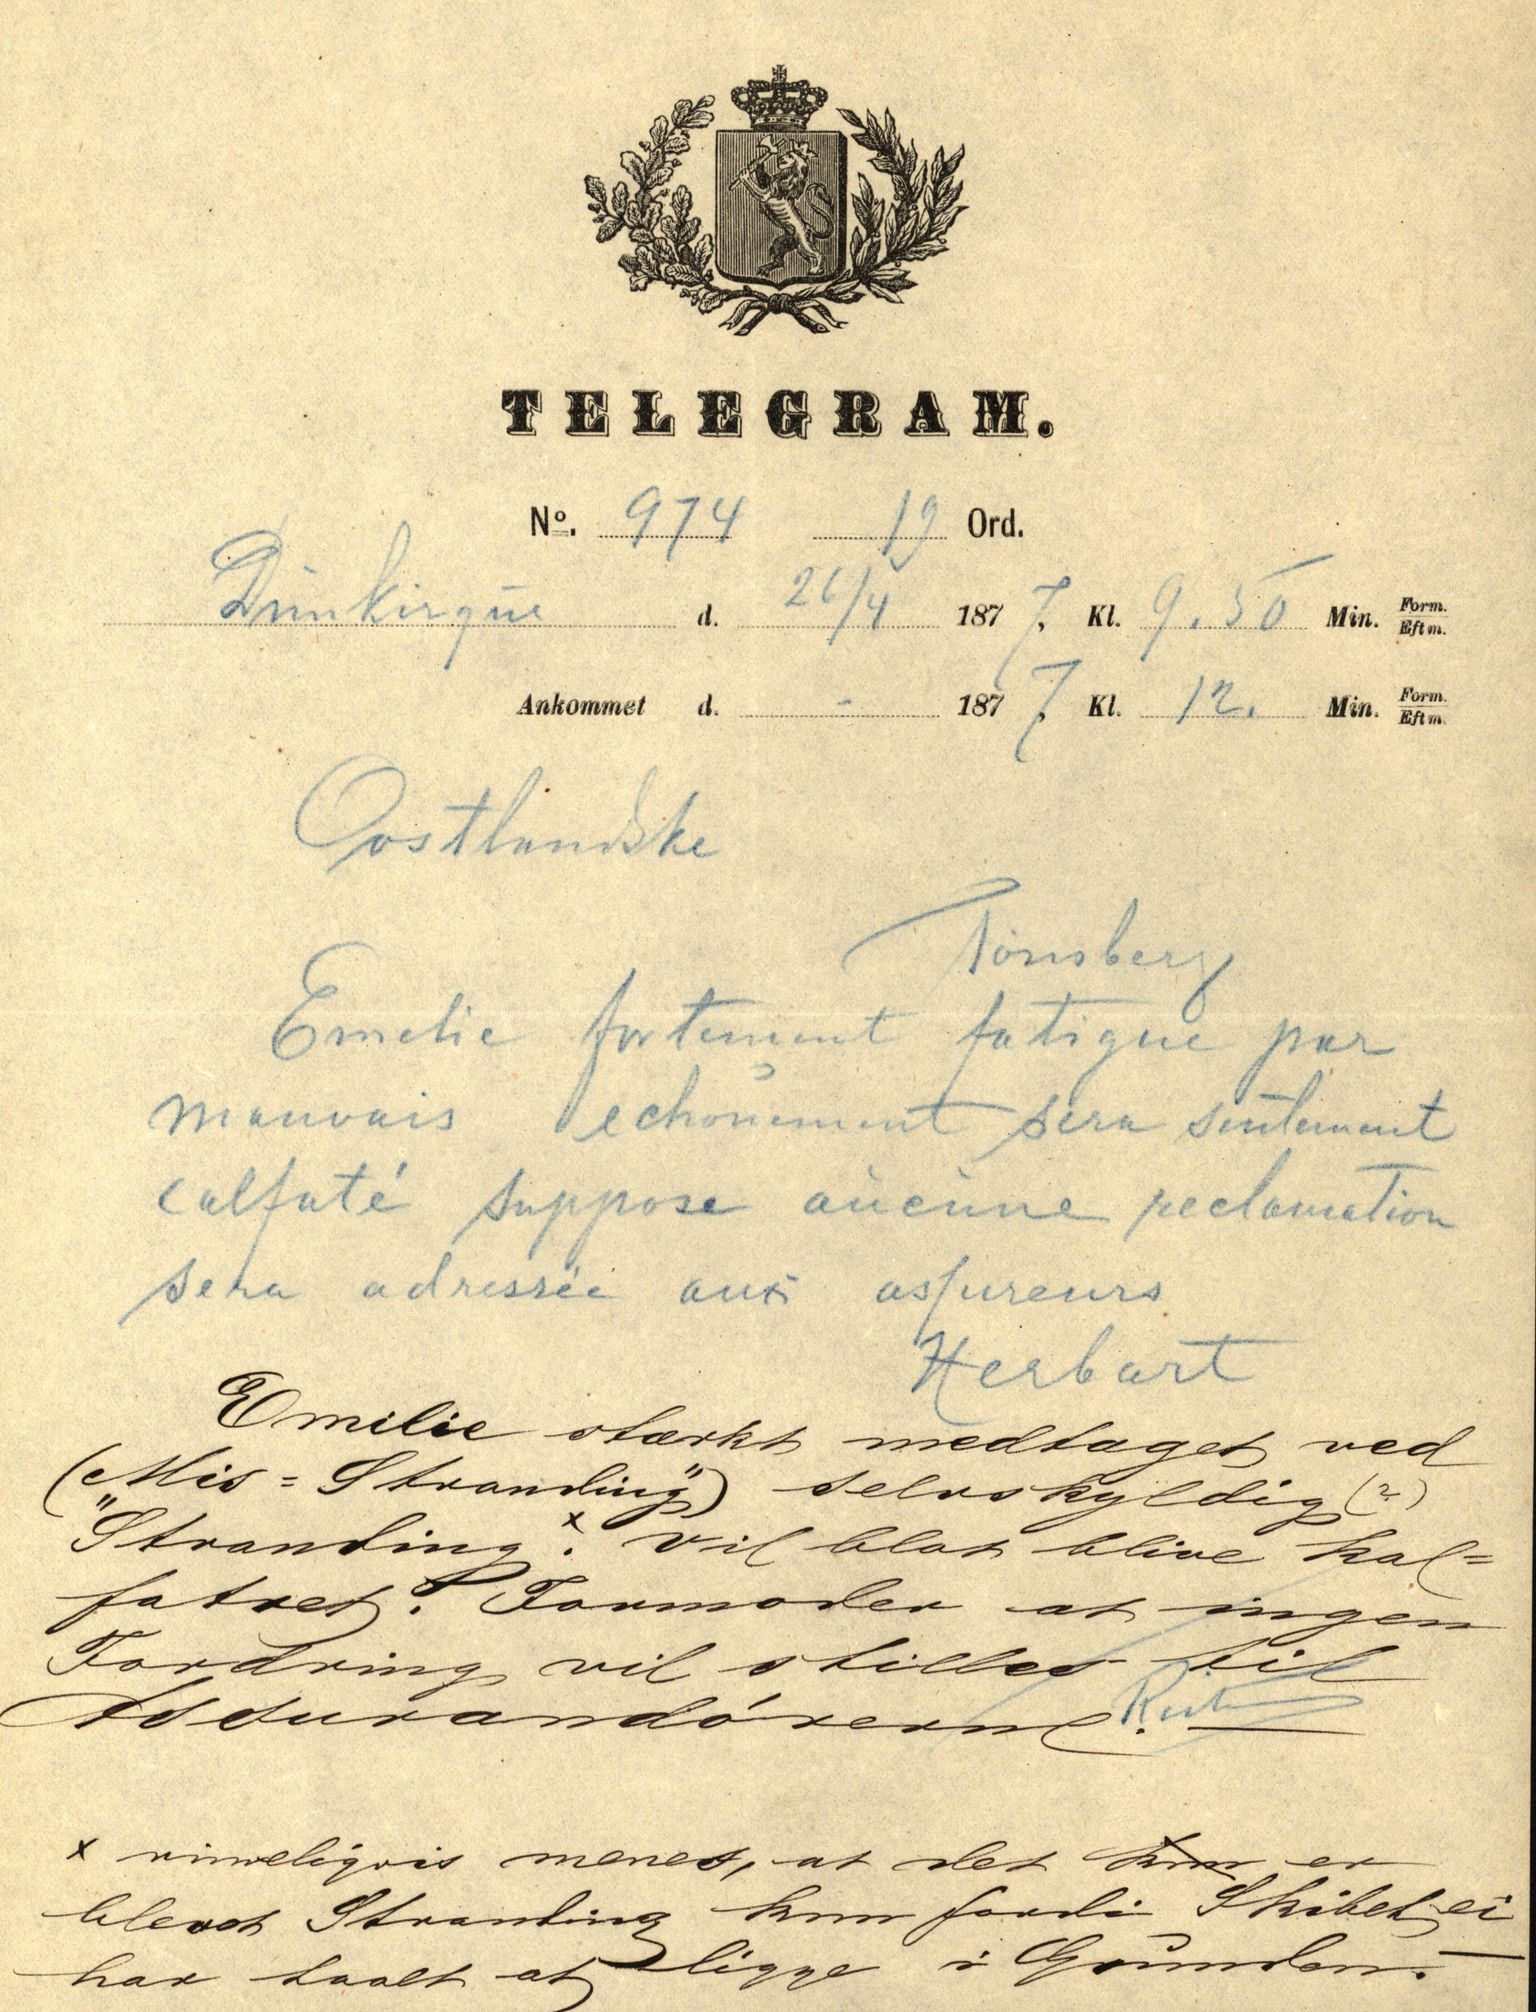 TELEGRAM.
No. 974 19 Ord.
Dunkirque d. 26/4 1877, Kl. 9.50 Min. Form. Eftm.
Ankommet d. - 1877, Kl. 12. Min. Form. Eftm.
Oostlandske
Tönsberg
Emelie fortement fatigue par
mauvais echouement sera seulement
calfaté suppose aucune reclamation
sera adressée aux assureurs
Herbart
Emilie stærkt medtaget ved
(Mis = Stranding") selvskyldig (?)
"Stranding".x Vil blot blive kal=
fatret. Formoder at ingen
Fordring vil stilles til
Assurandörerne. —
x rimeligvis menes, at det kun er
blevet Stranding kun fordi Skibet ei
har taalt at ligge i Grunden. —